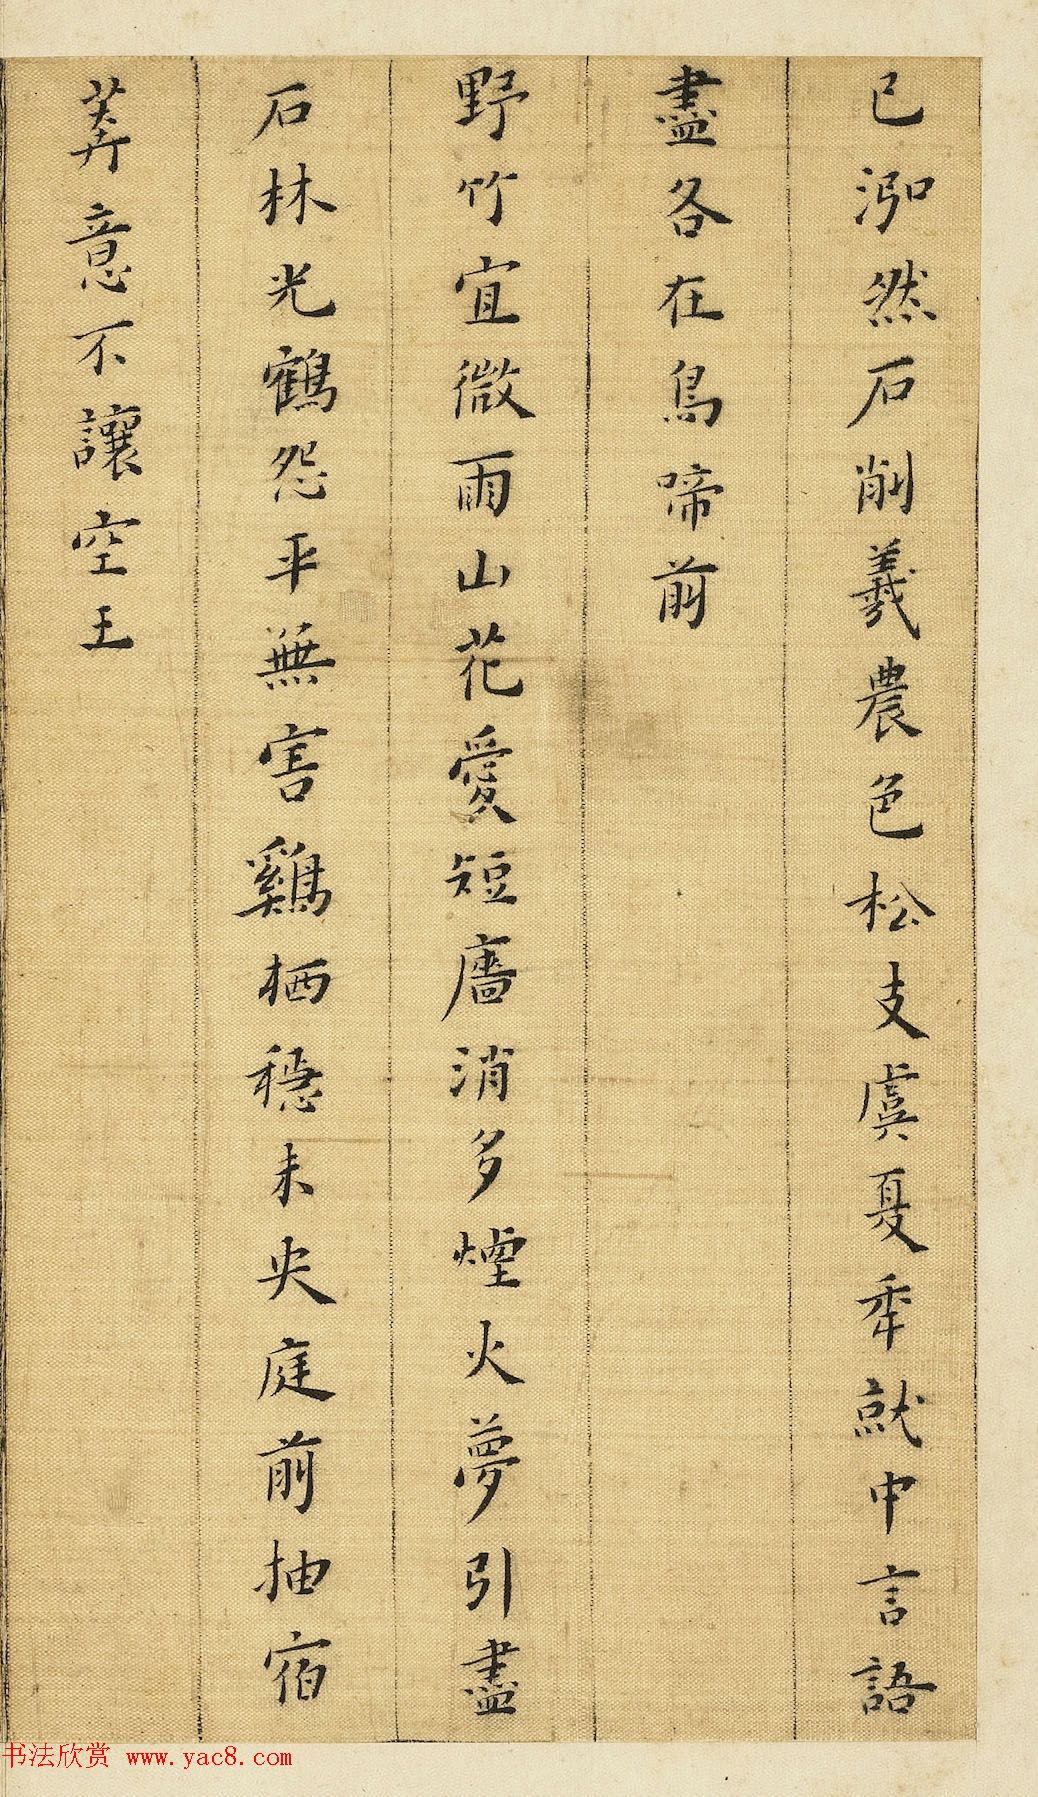 已泓然石削羲農色松支虞夏年就中言語
盡各在鳥啼前
野竹宜微雨山花愛短廧消多煙火夢引盡
石林光鶴怨平無害鷄栖穩未央庭前抽宿
莽意不讓空王
书法欣赏 www.yac8.com